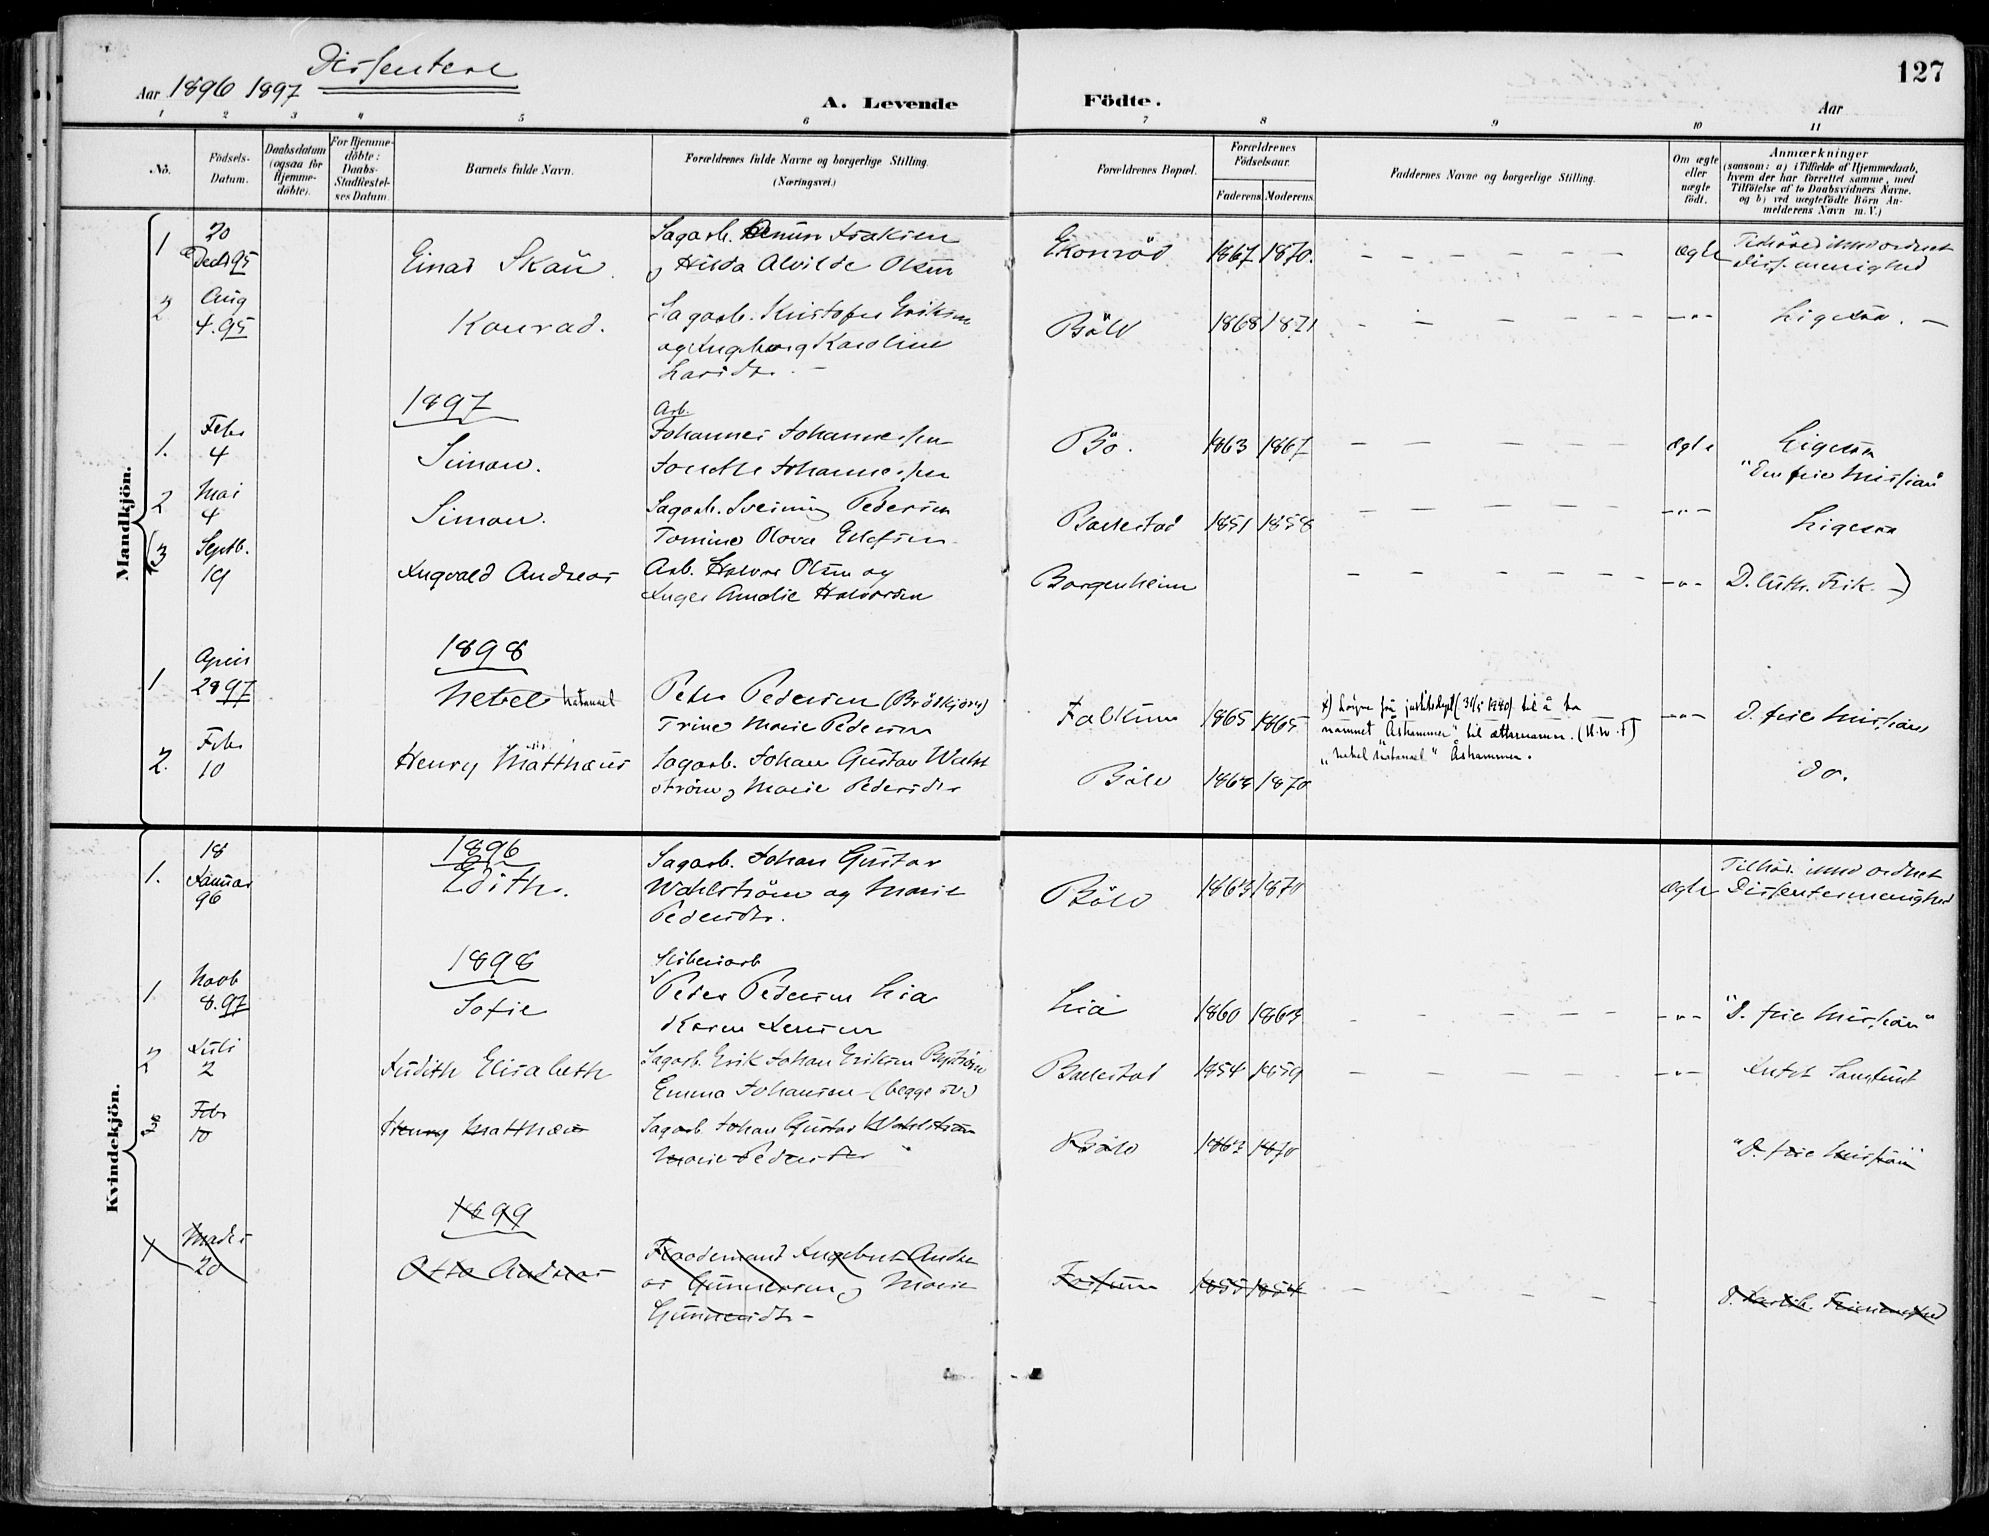 Dissentere
Aar 1896 1897
A. Levende Födte.
127
Aar
1 2 3 4 5 6 7 8 9 10 11
No.
Födsels-
Datum.
Daabsdatum
(ogsaa for
Hjemme-
döbte).
For Hjemme-
döbte:
Daabs-
Stadfæstel-
ses Datum.
Barnets fulde Navn.
Forældrenes fulde Navne og borgerlige Stilling.
(Næringsvei.)
Forældrenes Bopæl.
Forældrenes
Födselsaar.
Faderens Moderens
Faddernes Navne og borgerlige Stilling.
Om ægte
eller
uægte
födt.
Anmærkninger
(saasom: a) i Tilfælde af Hjemmedaab,
hvem der har forrettet samme, med
Tilföielse af to Daabsvidners Navne.
og b) ved uægtefödte Börn An-
melderens Navn m. V.)
Mandkjön.
1 20 Sagarb. Isaksen Tilhører ikke ordnet
Decb 95 Einar Skau og Hilda Alvilde Olsen 1867 1870. ægte Diss. menighed
2 Aug Sagarb. Kristofer Eriksen
4. 95 Konrad. Böle 1868 1871 -"- Ligesaa.
og Ingeborg Karoline
Larsdr.
1897
Arb.
1. Febr Johannes Johannessen
4 Simon. Bö. 1863 1867 ægte Ligesaa
Johannessen "Den frie Mission"
2 Mai Sagarb. Sveinung Pedersen
4 Simon. Ballestad 1851 1858 -"- Ligesaa
Tomine Olova
(3 Septb.
19 Ingvald Andreas Arb. Halvor Olsen og Borgenheim -"- D. luth. Frik. -)
Inger Amalie Halvorsen
1898
1 April
28 97 Nebel Natanael Peter Pedersen (Brödkjörer) Falkum 1865 1865 x) Løyve frå justisdept (31/5 1940) til å ta -"- D. frie Mission
Trine Marie Pedersen namnet "Åshammer" til ættarnamn.
"Nebel Natanael" Åshammer.
2. Febr
10 Henry Matthæus Sagarb. Johan Gustav Wahl
ström og Marie Pedersdr Böle 1863 1870 do.
Kvindekjön.
1896
1. 18 Sagarb. Johan Gustav Tilhör. ikke ordnet
Januar Edith. Wahlström og Marie Böle 1863 1870 ægte Dissentermenighed
96 Pedersdr.
1898
Sliberiarb
1 Novb Peder Pedersen Lia
8. 97 Sofie Lia 1860 1864 -"- "D. frie Mission"
Karen Jensen
2 Juli Sagarb. Erik Johan Eriksen
2 Judith Elisabeth Ballestad 1854 1859 -"- Intet Samfund
Emma Johansen (begge sv.)
Febr Sagarb. Johan Gustav Wahlström
10 Henry Matthæus Marie Pedersdr Böle 1863 1870 "D. frie Mission"
1899
1 Marts
20 Otto Andreas Ingebret Andre
as Gundersen og Marie Fossum 1855 1854
Gundersdr